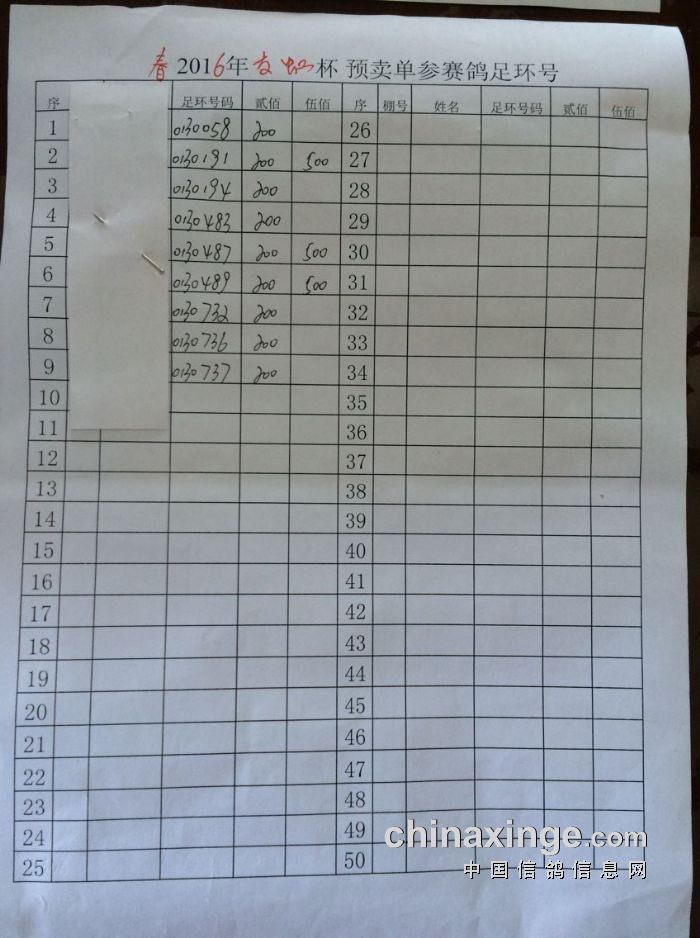 春 2016年友虹杯 预卖单参赛鸽足环号
序 足环号码 贰佰 伍佰 序 棚号 姓名 足环号码 贰佰 伍佰
1 0130058 200 26
2 0130191 200 500 27
3 0130194 200 28
4 0130483 200 29
5 0130487 200 500 30
6 0130489 200 500 31
7 0130732 200 32
8 0130736 200 33
9 0130737 200 34
10 35
11 36
12 37
13 38
14 39
15 40
16 41
17 42
18 43
19 44
20 45
21 46
22 47
23 48
24 49
25 50
chinaxinge.com
中国信鸽信息网